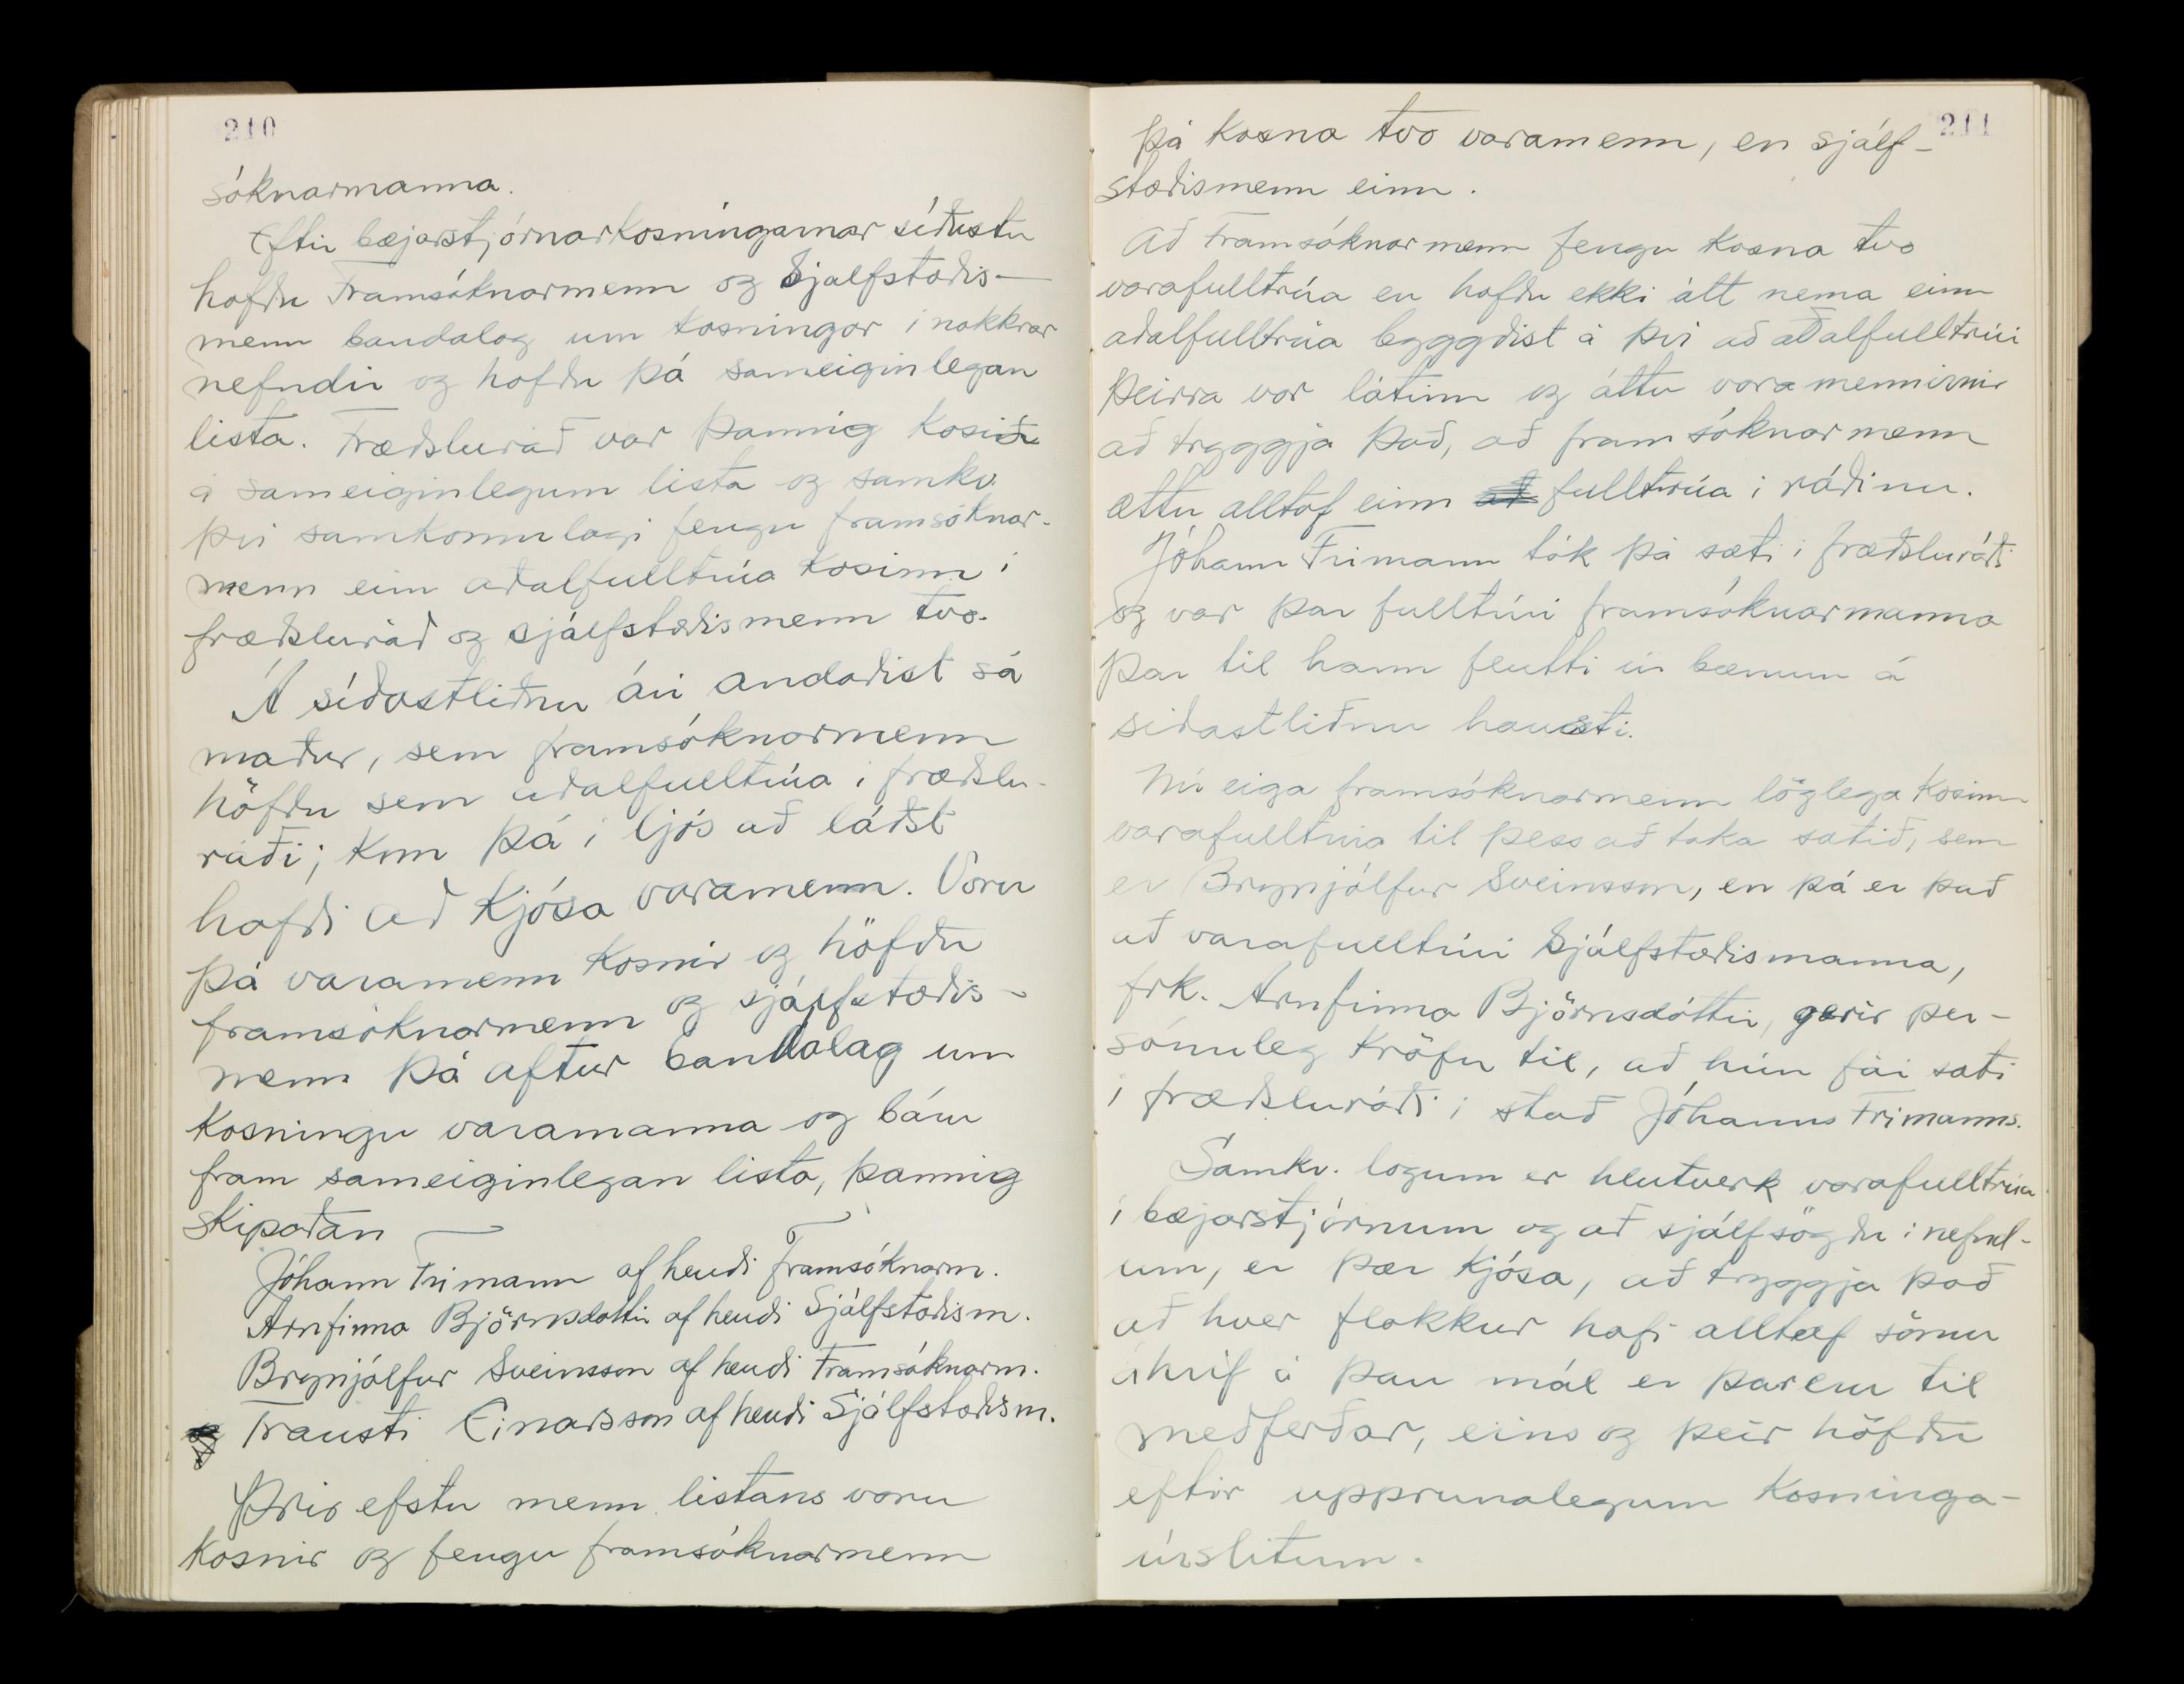 210
sóknarmanna.
Eftir bæjarstjórnarkosningarnar síðustu
hofðu Framsóknarmenn og Sjalfstæðis-
menn bandalag um kosningar i nokkrar
nefndir og hofðu þá sameiginlegan
lista. Fræðsluráð var þannig kosið
á sameiginlegum lista og samkv.
því samkomulagi fengu framsóknar-
menn einn aðalfulltrúa kosinn i
fræðsluráð og sjálfstæðismenn tvo.
Á síðastliðnu ári andaðist sá
maður, sem framsóknarmenn
höfðu sem aðalfulltrúa i fræðslu-
ráði; kom þá i ljós að láðst
hafði að kjósa varamenn. Voru
þá varamenn kosnir og höfðu
framsóknarmenn og sjálfstæðis-
menn þá aftur bandalag um
kosningu varamanna og báru
fram sameiginlegan lista, þannig
skipaðan
Jóhann Frimann af hendi Framsóknarm.
Arnfinna Björnsdóttir af hendi Sjálfstæðism.
Brynjólfur Sveinsson af hendi Framsóknarm.
og Trausti Einarsson af hendi Sjálfstæðism.
Þrir efstu menn listans voru
kosnir og fengu framsóknarmenn
211
þá kosna tvo varamenn, en sjálf-
stæðismenn einn.
Að Framsóknarmenn fengu kosna tvo
varafulltrúa en hofðu ekki átt nema einn
aðalfulltrúa byggðist á því að aðalfulltrúi
þeirra var látinn og áttu varamennirnir
að tryggja það, að framsóknarmenn
ættu alltaf einn fulltrúa i ráðinu.
Jóhann Frimann tók þá sæti i fræðsluráði
og var þar fulltrúi framsóknarmanna
þar til hann flutti úr bænum á
siðastliðnu hausti.
Nú eiga framsóknarmenn löglega kosinn
varafulltrúa til þess að taka sætið, sem
er Brynjólfur Sveinsson, en þá er það
að varafulltrúi Sjálfstæðismanna,
frk. Arnfinna Björnsdóttir, gerir per-
sónuleg kröfu til, að hún fái sæti
i fræðsluráði i stað Jóhanns Frimanns.
Samkv. logum er hlutverk varafulltrúa
i bæjarstjórnum og að sjálfsögðu i nefnd-
um, er þær kjósa, að tryggja það
að hver flokkur hafi alltaf sömu
áhrif á þau mál er þar eru til
meðferðar, eins og þeir höfðu
eftir upprunalegum kosninga-
úrslitum.